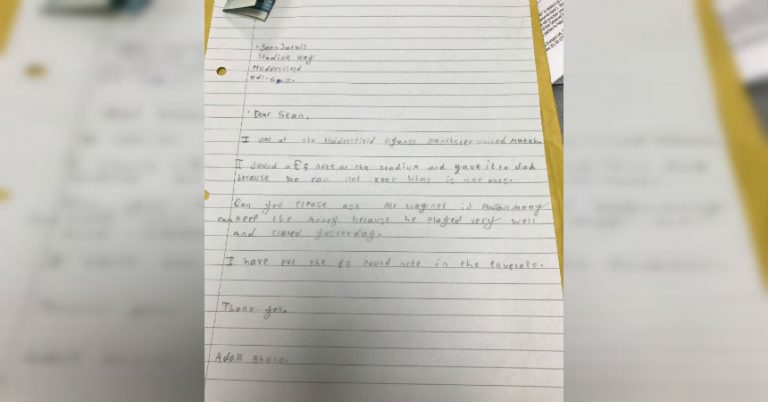 Sean Jarvis
Stadium Way
Huddersfield
HD1-6
Dear Sean,
I was at the Huddersfield against Manchester united match.
I found a £5 note at the stadium and gave it to dad
because we can not keep what is not ours.
Can you please ask Mr Wagner if money
can keep the money because he played very well
and scored yesterday.
I have put the £5 pound note in the envelope.
Thank you.
Adam